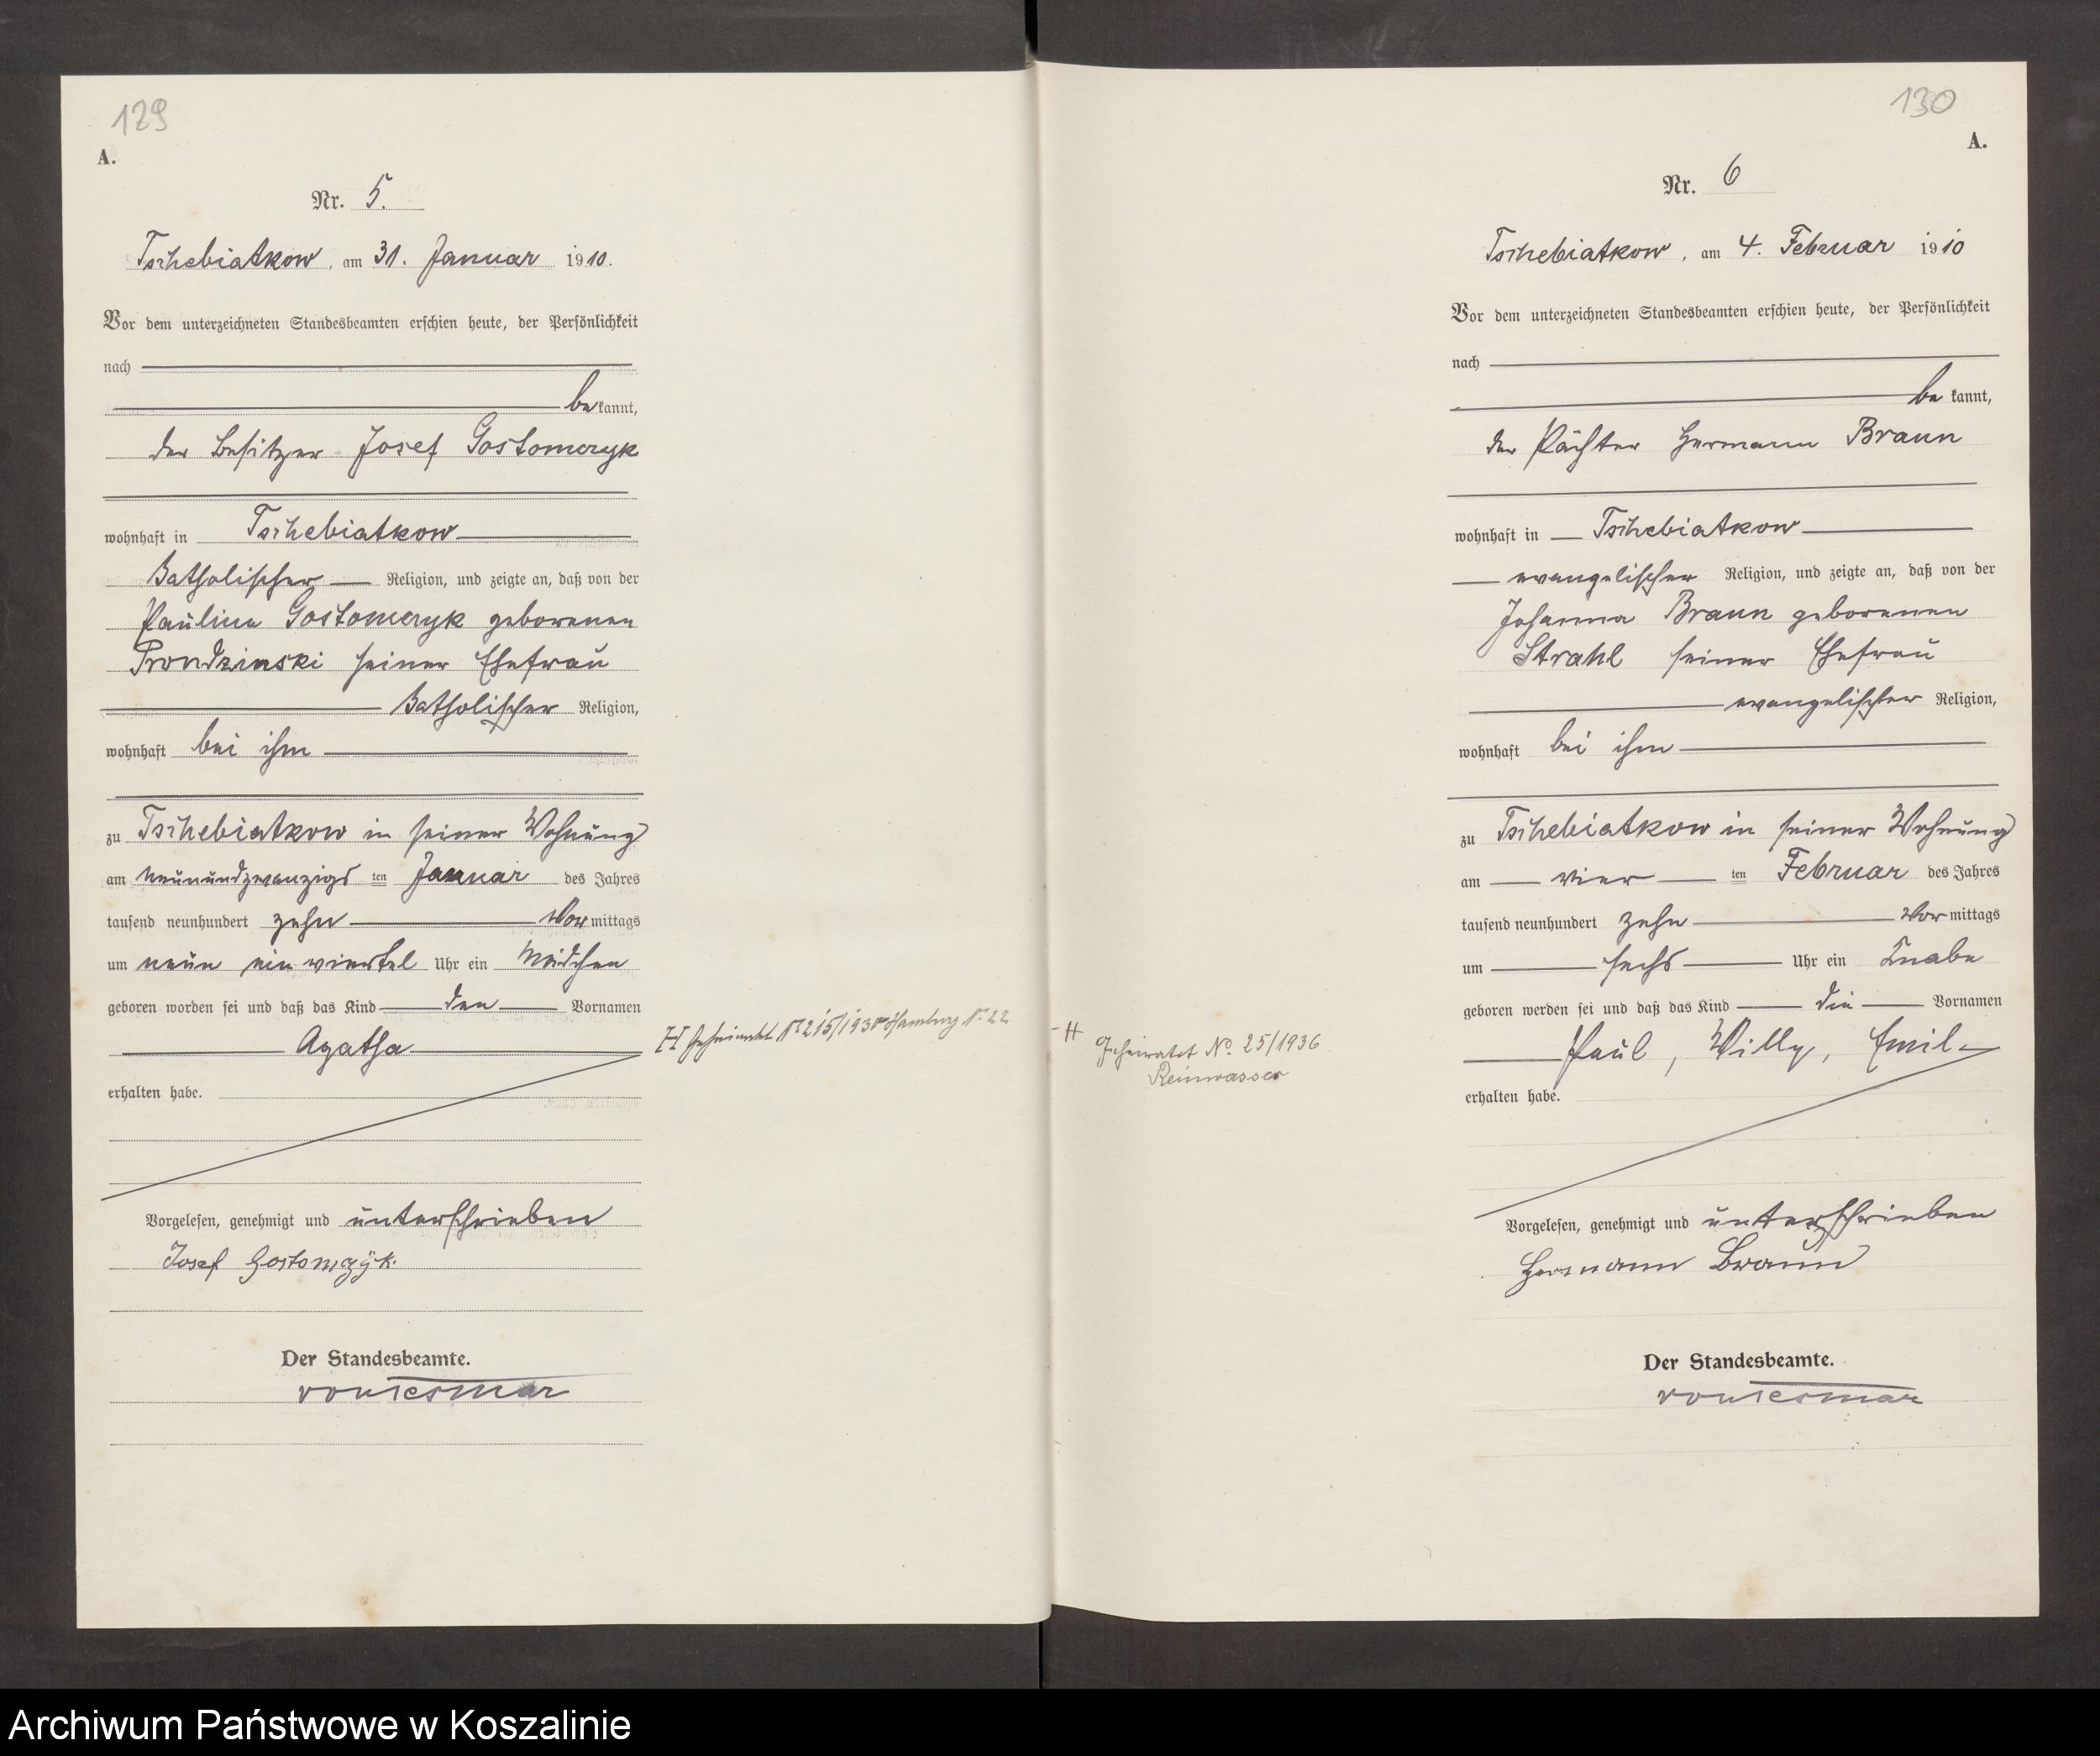 129
A.
Nr. 5.
Tschebiatkow, am 31. Januar 1910.
Vor dem unterzeichneten Standesbeamten erschien heute, der Persönlichkeit
nach
bekannt,
der Besitzer Josef Gostomczyk
wohnhaft in Tschebiatkow
katholischer Religion, und zeigte an, daß von der
Pauline Gostomczyk geborenen
Prondzinski seiner Ehefrau
katholischer Religion,
wohnhaft bei ihm
zu Tschebiatkow in seiner Wohnung
am neunundzwanzigsten Januar des Jahres
tausend neunhundert zehn Vormittags
um neun ein viertel Uhr ein Mädchen
geboren worden sei und daß das Kind den Vornamen
Agatha
erhalten habe.
H Geheiratet Nr. 215/193 Hamburg Nr. 22
Vorgelesen, genehmigt und unterschrieben
Josef Gostomzÿk.
Der Standesbeamte.
von Tesmar
130
A.
Nr. 6
Tschebiatkow, am 4. Februar 1910
Vor dem unterzeichneten Standesbeamten erschien heute, der Persönlichkeit
nach
bekannt,
der Pächter Hermann Braun
wohnhaft in Tschebiatkow
evangelischer Religion, und zeigte an, daß von der
Johanna Braun geborenen
Strahl seiner Ehefrau
evangelischer Religion,
wohnhaft bei ihm
zu Tschebiatkow in seiner Wohnung
am vierten Februar des Jahres
tausend neunhundert zehn Vormittags
um sechs Uhr ein Knabe
geboren worden sei und daß das Kind die Vornamen
Paul, Willy, Emil
erhalten habe.
H Geheiratet No. 25/1936
Reinwasser
Vorgelesen, genehmigt und unterschrieben
Hermann Braun
Der Standesbeamte.
von Tesmar
Archiwum Państwowe w Koszalinie